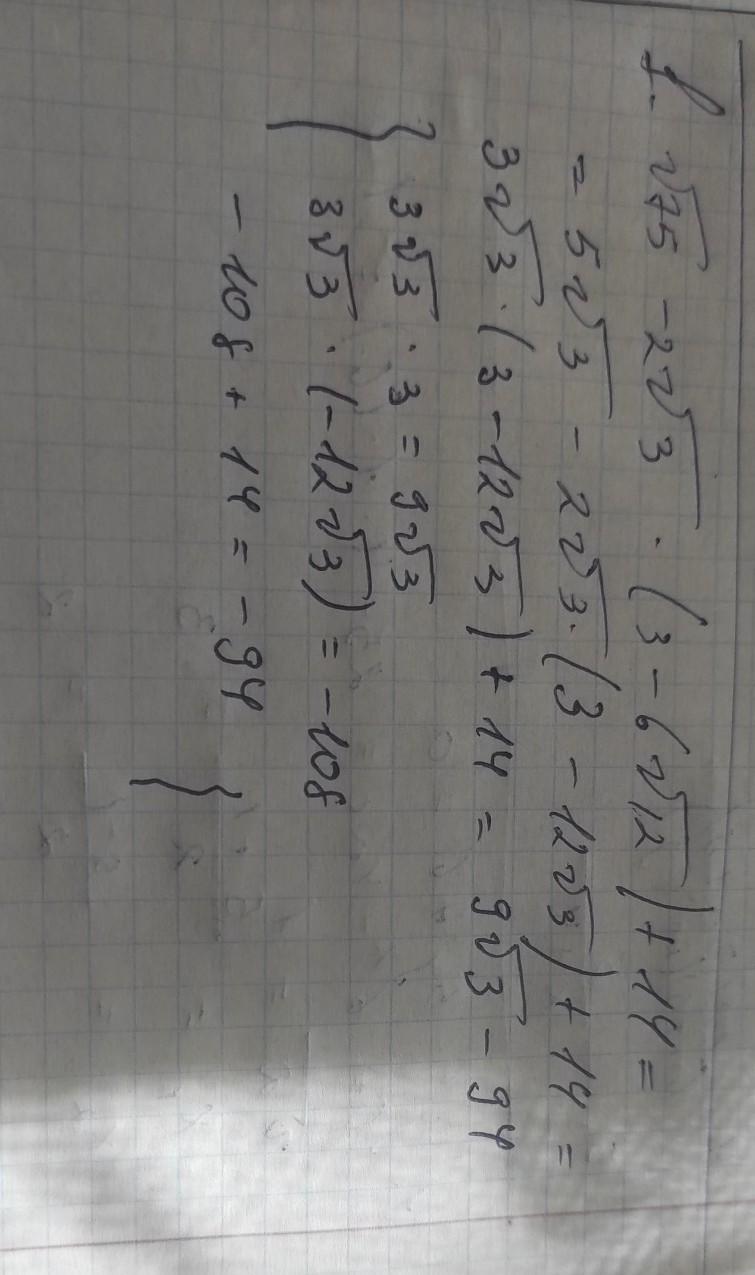 1. √75 - 2√3 · (3 - 6√12) + 14 =
= 5√3 - 2√3 · (3 - 12√3) + 14 =
3√3 · (3 - 12√3) + 14 = 9√3 - 94
{ 3√3 · 3 = 9√3
3√3 · (-12√3) = -108
-108 + 14 = -94 }